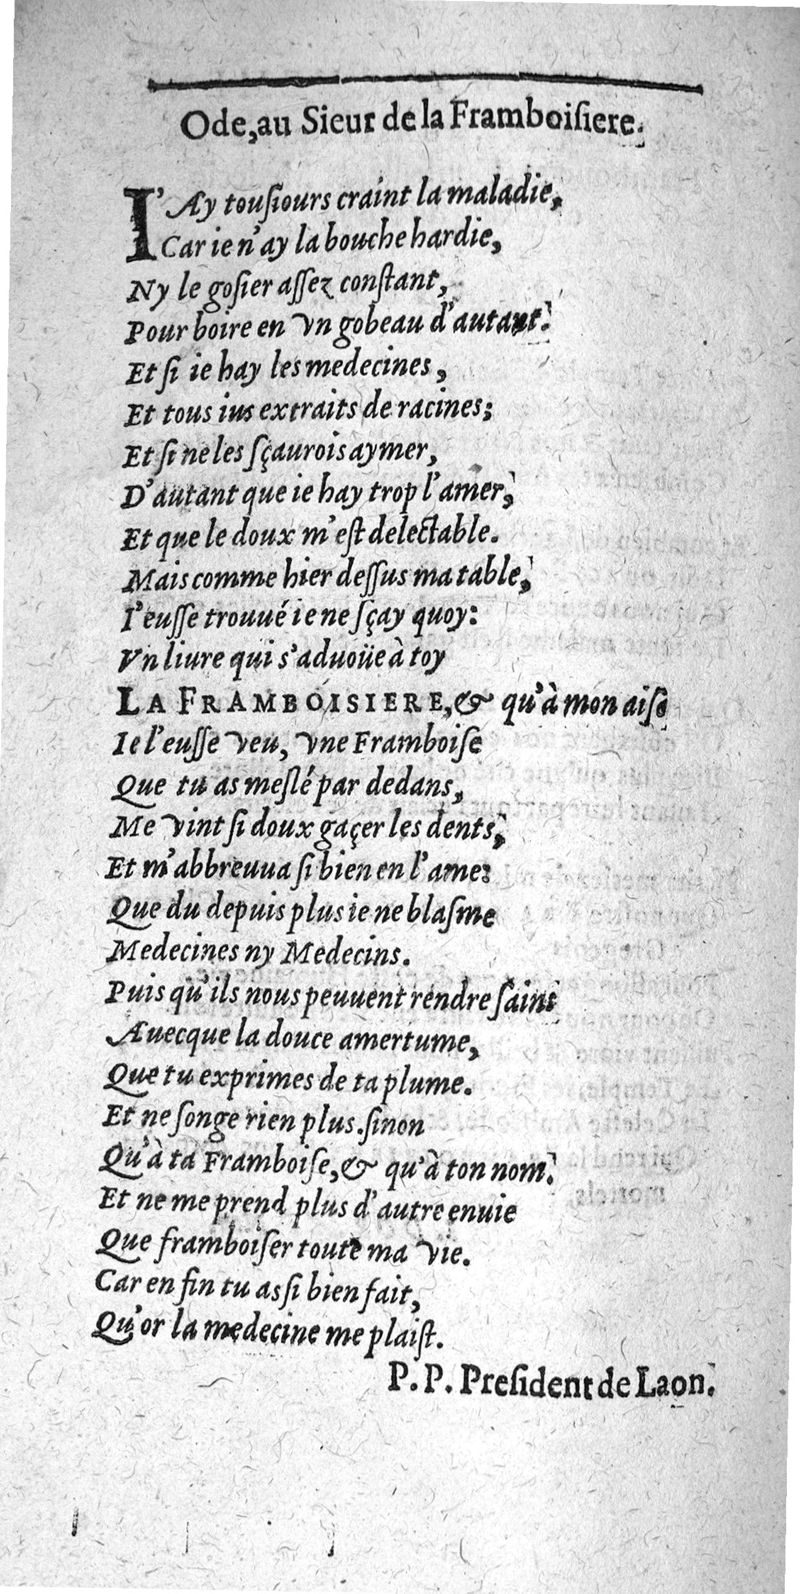 Ode, au Sieur de la Framboiſiere.
I'Ay touſiours craint la maladie,
Car ie n'ay la bouche hardie,
Ny le goſier aſſez conſtant,
Pour boire en vn gobeau d'autant.
Et ſi ie hay les medecines,
Et tous ius extraits de racines;
Et ſi ne les ſçaurois aymer,
D'autant que ie hay trop l'amer,
Et que le doux m'eſt delectable.
Mais comme hier deſſus ma table,
I'euſſe trouué ie ne ſçay quoy:
Vn liure qui s'aduoüe à toy
LA FRAMBOISIERE, & qu'à mon aiſe
Ie l'euſſe veu, vne Framboiſe
Que tu as meſlé par dedans,
Me vint ſi doux gaçer les dents,
Et m'abbreuua ſi bien en l'ame:
Que du depuis plus ie ne blaſme
Medecines ny Medecins.
Puis qu'ils nous peuuent rendre ſains
Auecque la douce amertume,
Que tu exprimes de ta plume.
Et ne ſonge rien plus.ſinon
Qu'à ta Framboiſe, & qu'à ton nom.
Et ne me prend plus d'autre enuie
Que framboiſer toute ma vie.
Car en fin tu as ſi bien fait,
Qu'or la medecine me plaiſt.
P. P. Preſident de Laon.